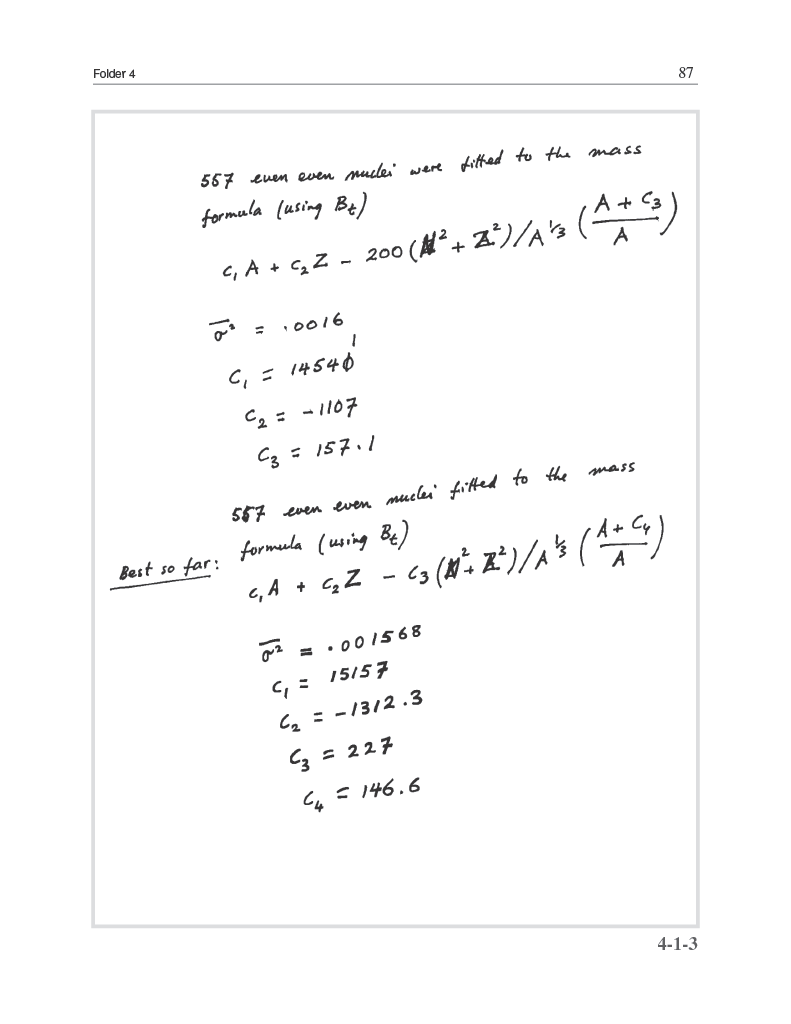 Folder 4 87
557 even even nuclei were fitted to the mass
formula (using Bt)
c₁A + c₂Z - 200(N² + Z²)/A^1/3 ((A + C₃)/A)
σ² = .0016
1
C₁ = 14540
C₂ = -1107
C₃ = 157.1
557 even even nuclei fitted to the mass
formula (using Bt)
Best so far:
c₁A + c₂Z - c₃(N² + Z²)/A^1/3 ((A + C₄)/A)
σ² = .001568
C₁ = 15157
C₂ = -1312.3
C₃ = 227
C₄ = 146.6
4-1-3